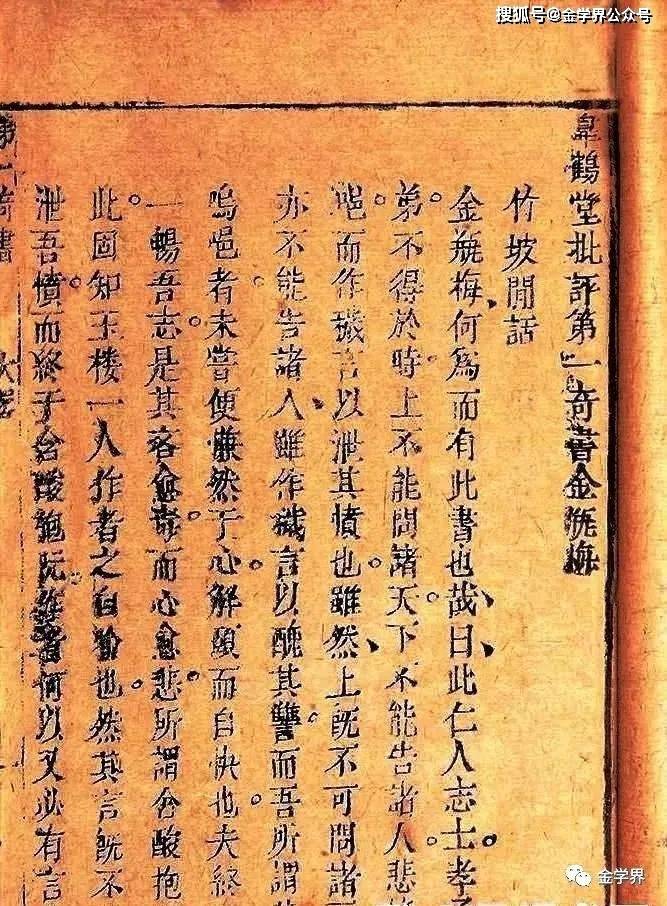 搜狐号@金学界公众号
皐鶴堂批評第一奇書金瓶梅
竹坡閒話
金瓶梅、何爲而有此書也哉、曰、此仁人志士。孝子
弟。不得於時。上不能問諸天。下不能告諸人。悲
唈而作穢言以泄其憤也。雖然、上既不可問諸
亦不能告諸人、雖作穢言以醜其讐。而吾所謂
嗚唈者。未嘗便慊然于心。解頤而自快也。夫終
一暢吾志。是其言愈毒。而心愈悲。所謂含酸抱
此。固知玉楼一人。作者之自喻也。然其言既不
泄吾憤。而終于含酸抱阮。作者何以又必有言
第一奇書
金学界